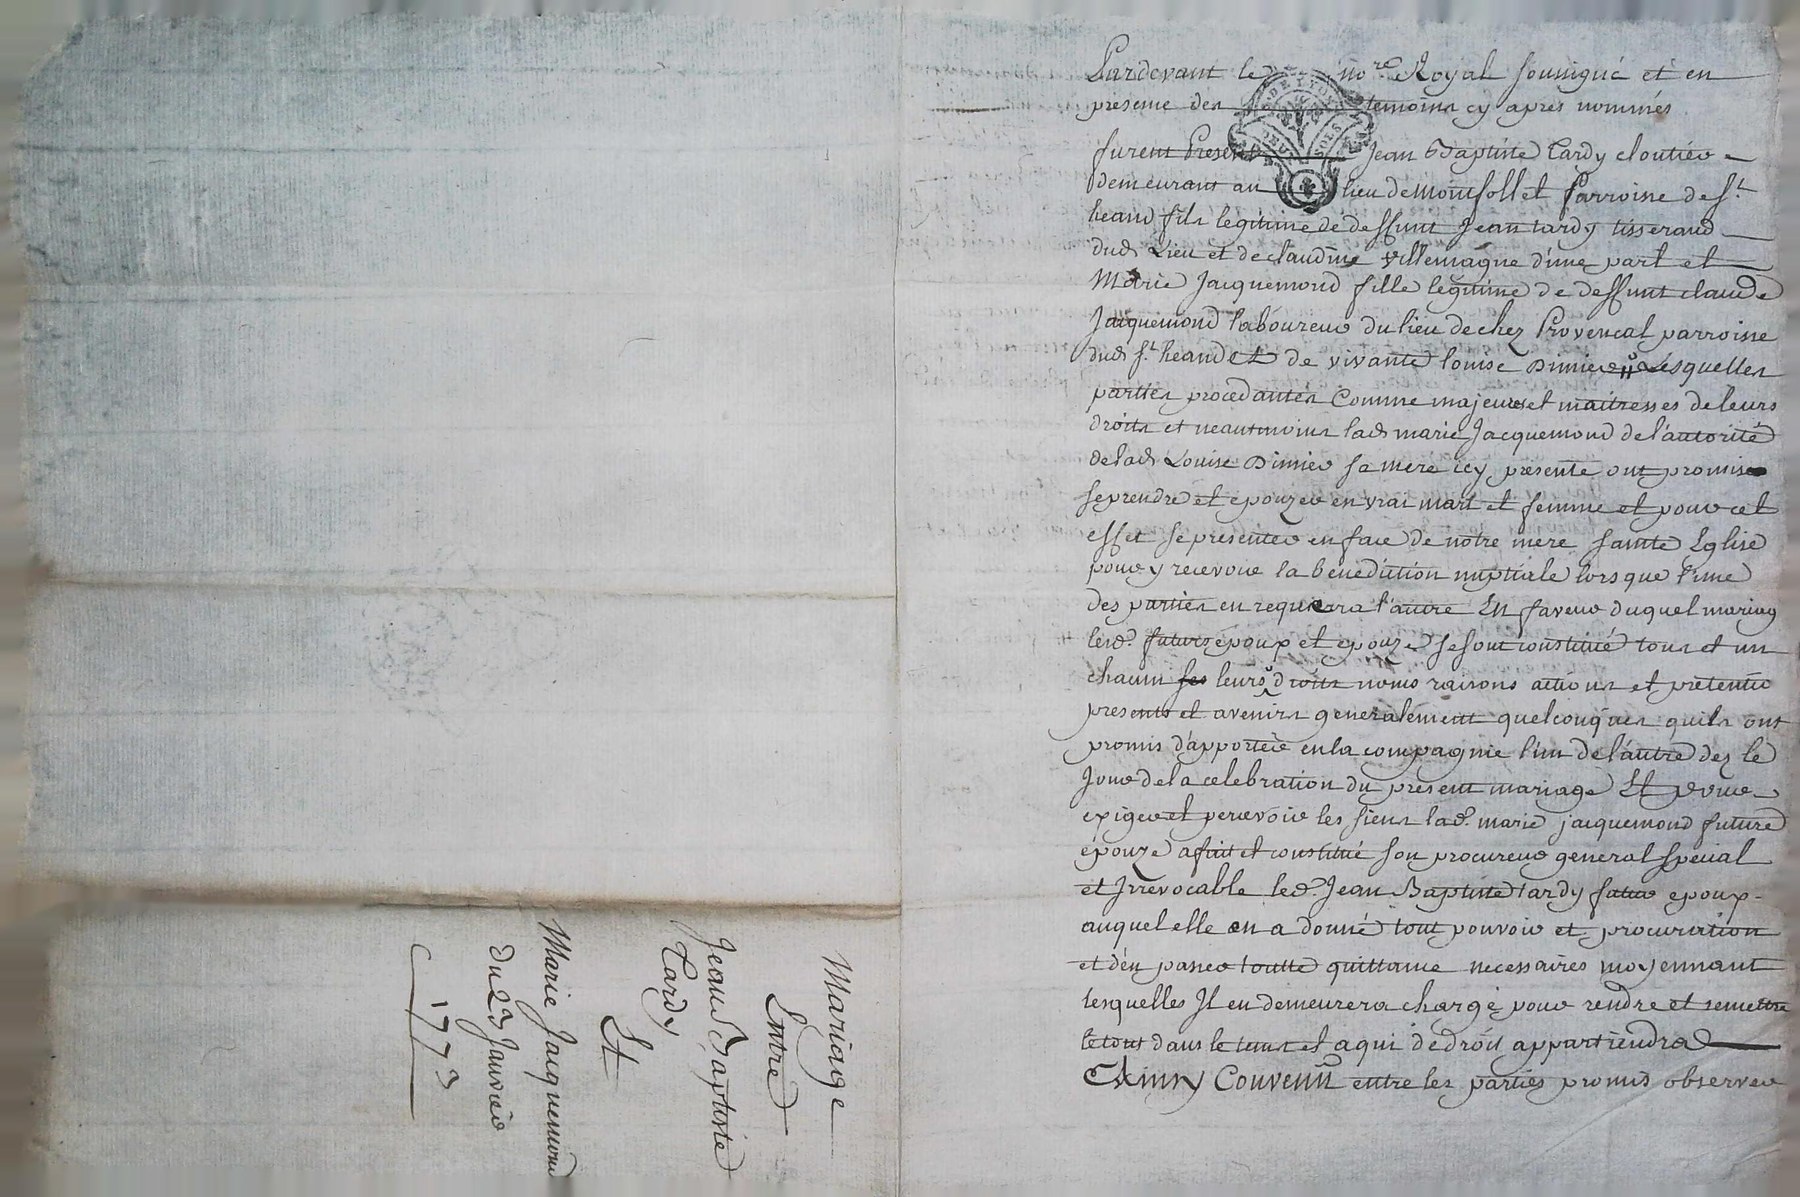 Mariage
Entre
Jean Baptiste
Tardy
Et
Marie Jacquemond
Du 23 Janvier
1773
Pardevant le no.re Royal soussigné et en
presence des temoins cy apres nommés
DE LYON
DEUX SOLS
furent Presents Jean Baptiste Tardy cloutier
demeurant au lieu de Montfollet parroisse de St
heand fils legitime de deffunt Jean tardy tisserand
dud Lieu et de claudine villemagne d'une part et
Marie Jacquemond fille legitime de deffunt claude
Jacquemond laboureur du lieu de chez Provencal parroisse
dud St heand et de vivante louise Dimier Lesquelles
parties procedantes Comme majeures et maitresses de leurs
droits et neantmoins lad marie Jacquemond de l'autorité
de lad Louise Dimier sa mere icy presente ont promis
se prendre et epouzer en vrai mari et femme et pour cet
effet se presenter en face de notre mere sainte Eglise
pour y recevoir la benediction nuptiale lorsque l'une
des parties en requerra l'autre En faveur duquel mariag
lesd. futurs epoux et epouze se sont constitué tous et un
chacun leurs droits noms raisons actions et pretentio
presents et avenirs generalement quelconques quils ont
promis d'apporter en la compagnie l'un de l'autre dez le
Jour de la celebration du present mariage Et pour
exiger et percevoir les siens lad. marie jacquemond future
epouze a fait et constitué son procureur general special
et Irrevocable led. Jean Baptiste tardy futur epoux
auquel elle en a donné tout pouvoir et procuration
et d'en passer toutte quittance necessaires moyennant
lesquelles Il en demeurera chargé pour rendre et remettre
le tout dans le tems et a qui de droit appartiendra
Ainsy Convenu entre les parties promis observer